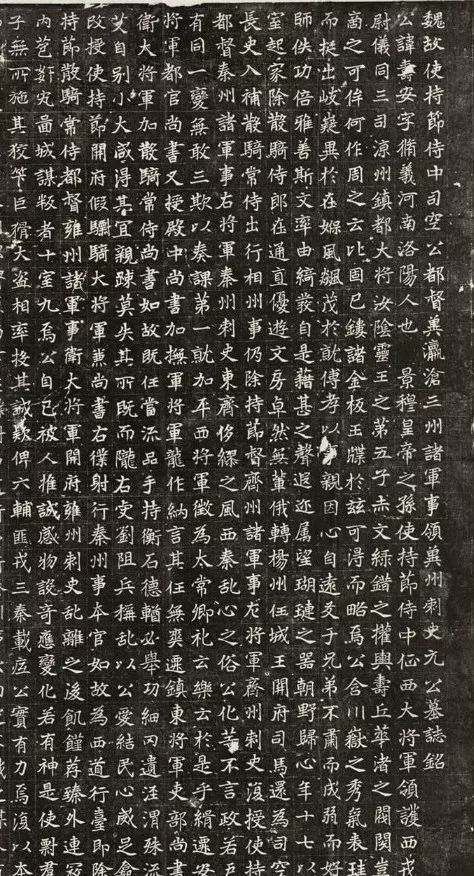 魏故使持節侍中司空公都督冀瀛滄三州諸軍事領冀州刺史元公墓誌銘
公諱壽安字脩義河南洛陽人也　景穆皇帝之孫使持節侍中征西大將軍領護西戎
尉儀同三司涼州鎮都大將汝陰靈王之第五子赤文綠錯之權輿壽丘華渚之閥閱豈
啇之可侔何作周之云比固已鏤諸金板玉牒於茲可得而略焉公含川嶽之秀氣表珪
而挺出岐嶷異於在緥風飆茂於就傅孝以事親因心自遠友于兄弟不肅而成弱而好
師佚功倍雅善斯文率由綺發自是藉甚之聲遐迩屬望瑚璉之器朝野歸心年十七以
室起家除散騎侍郎在通直優遊文房卓然無輩俄轉楊州任城王開府司馬還為司空
長史入補散騎常侍出行相州事仍除持節督齊州諸軍事左將軍齊州刺史復授使持
都督秦州諸軍事右將軍秦州刺史東齊侈繆之風西秦乱心之俗公化等不言政若戶
有同一變無敢三欺以奏課第一就加平西將軍徵為太常卿礼云樂云於是乎緝遷安
將軍都官尚書又授殿中尚書加撫軍將軍龍作納言其任無爽遷鎮東將軍吏部尚書
衛大將軍加散騎常侍尚書如故既任當流品手持衡石德輶必舉功細罔遺涇渭殊流
艾自別小大咸得其宜親疎莫失其所既而隴右受劉阻兵稱乱以公愛結民心威足倉
改授使持節開府假驃騎大將軍兼尚書右僕射行秦州事本官如故為西道行臺即除
持節散騎常侍都督雍州諸軍事衛大將軍開府雍州刺史乱離之後飢饉荐臻外連寇
內苞姧宄啚城謀叛者十室九焉公自己被人推誠感物設奇應變化若有神是使剽羣
子無所施其狡筭巨猾大盜相率投其誠款俾六輔匪戎三秦載底公實有力焉復以本